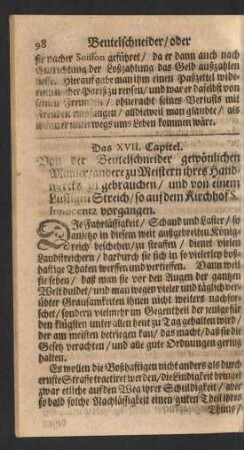 98 Beutelschneider/ oder
sie nacher Soisson geführet/ da er dann auch nach
der Loßzahlung das Geld außzahlen
Hierauf gabe man ihm einen Paßzettel wide-
nacher Pariß zu reysen/ und war er daselbst von
seinen Freunden/ ohneracht seines Verlusts mit
Freuden empfangen/ alldieweil man glaubte/ als
wann er unterwegs ums Leben kommen wäre.
Das XVII. Capitel.
Von der Beutelschneider gewönlichen
Manier/ andere zu Meistern ihres Hand-
wercks zu gebrauchen/ und von einem
Lustigen Streich/ so auf dem Kirchhof S.
Innocentz vorgangen.
DIe Fahrlässigkeit/ Schand und Laster/ so
anietzo in diesem weit außgebreiten König-
reich beschehen/ zu straffen/ dienet vielen
Landstreichern/ dardurch sie sich in so vielerley boß-
hafftige Thaten werffen und vertieffen. Dann weil
sie sehen/ daß man sie vor den Augen der gantzen
Welt duldet/ und man wegen vieler und täglich ver-
übter Grausamkeiten ihnen nicht weiters nachfor-
schet/ sondern vielmehr im Gegentheil der jenige für
den klügsten unter allen heut zu Tag gehalten wird/
der am meisten betriegen kan/ und macht/ daß sie die
Gesetz verachten/ und alle gute Ordnungen gering
halten.
Es wollen die Boßhafftigen nicht anders als durch
ernste Straffe tractiret werden/ die Lindigkeit bringet
zwar etliche auf den Weg ihrer Schuldigkeit/ aber
so bald solche Nachlässigkeit einen guten Theil ihres
Thuns/